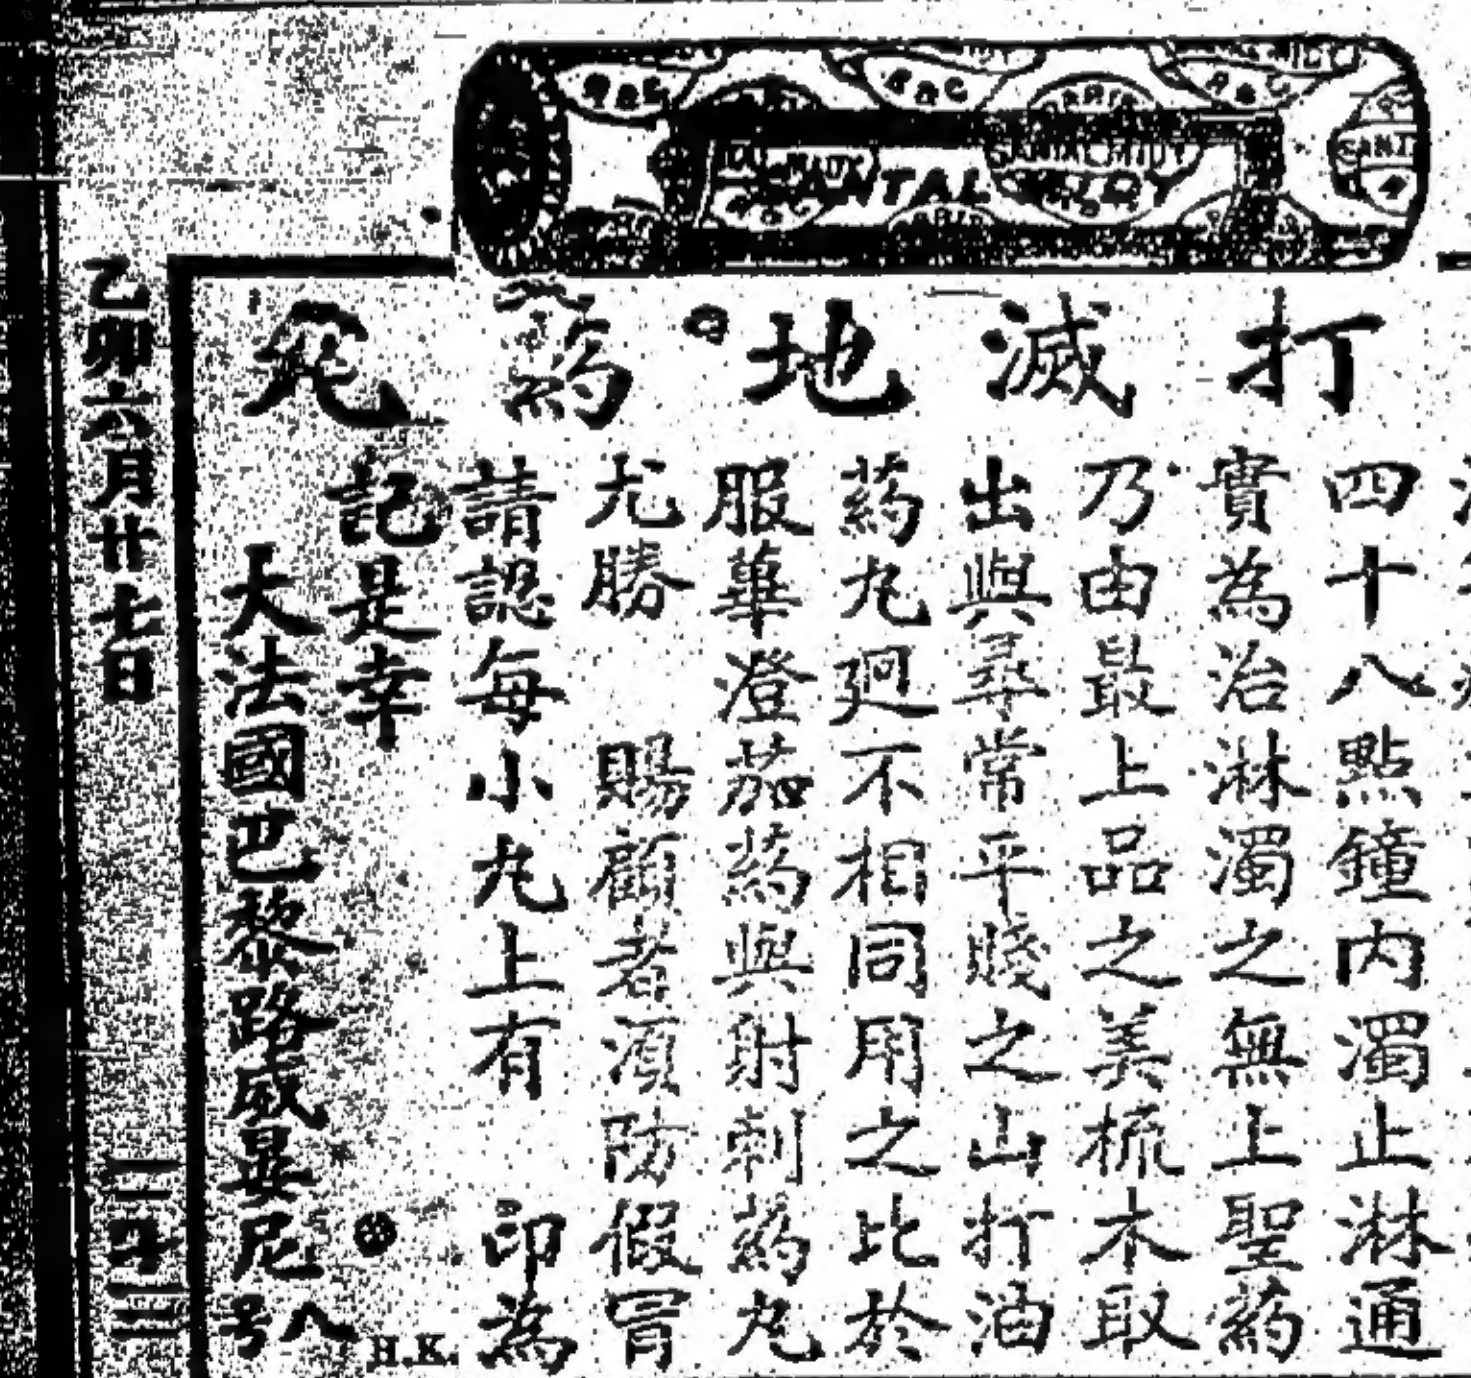 SANTAL MIDY
打滅地藥丸
四十八點鐘內濁止淋通
實為治淋濁之無上聖藥
乃由最上品之美梳木取
出與尋常平賤之山打油
葯丸廻不相同用之比於
服蓽澄茄葯與射刺葯丸
尤勝　賜顧者須防假冒
請認每小丸上有　印為
記是幸
大法國巴黎路威晏尼
八号
H.K.
乙卯六月廿七日